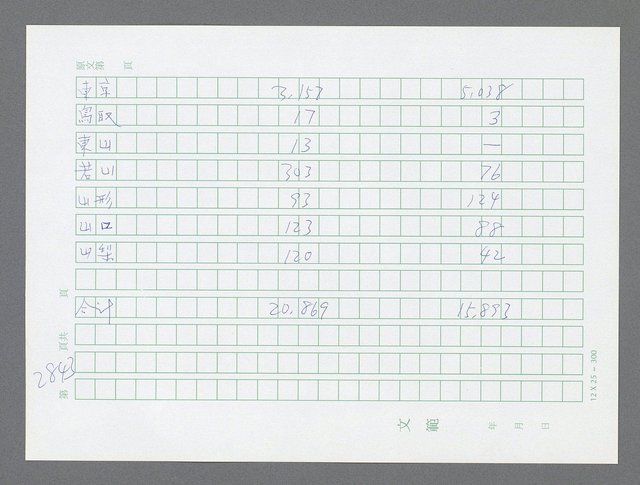 原文第 頁
東京 3,157 5,038
鳥取 17 3
東山 13 —
若山 343 76
山形 93 124
山口 123 88
山梨 120 42
合計 20,869 15,893
第 頁共 頁
2843
12 X 25 — 300
文範
年 月 日